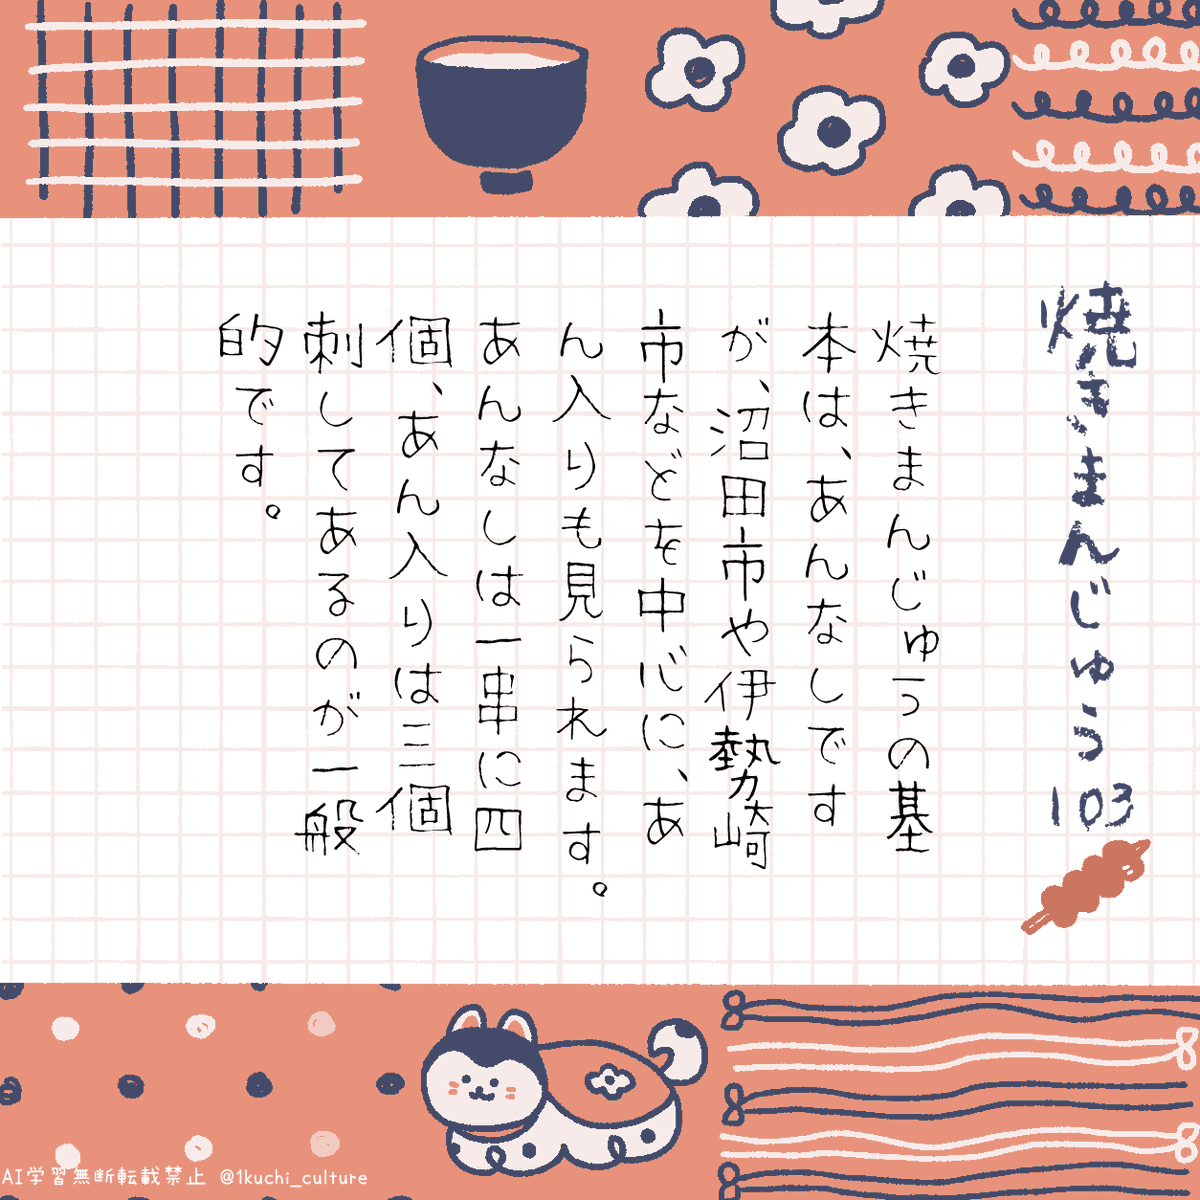 焼きまんじゅう103
焼きまんじゅうの基
本は、あんなしです
が、沼田市や伊勢崎
市などを中心に、あ
ん入りも見られます。
あんなしは一串に四
個、あん入りは三個
刺してあるのが一般
的です。
AI学習無断転載禁止 @1kuchi_culture